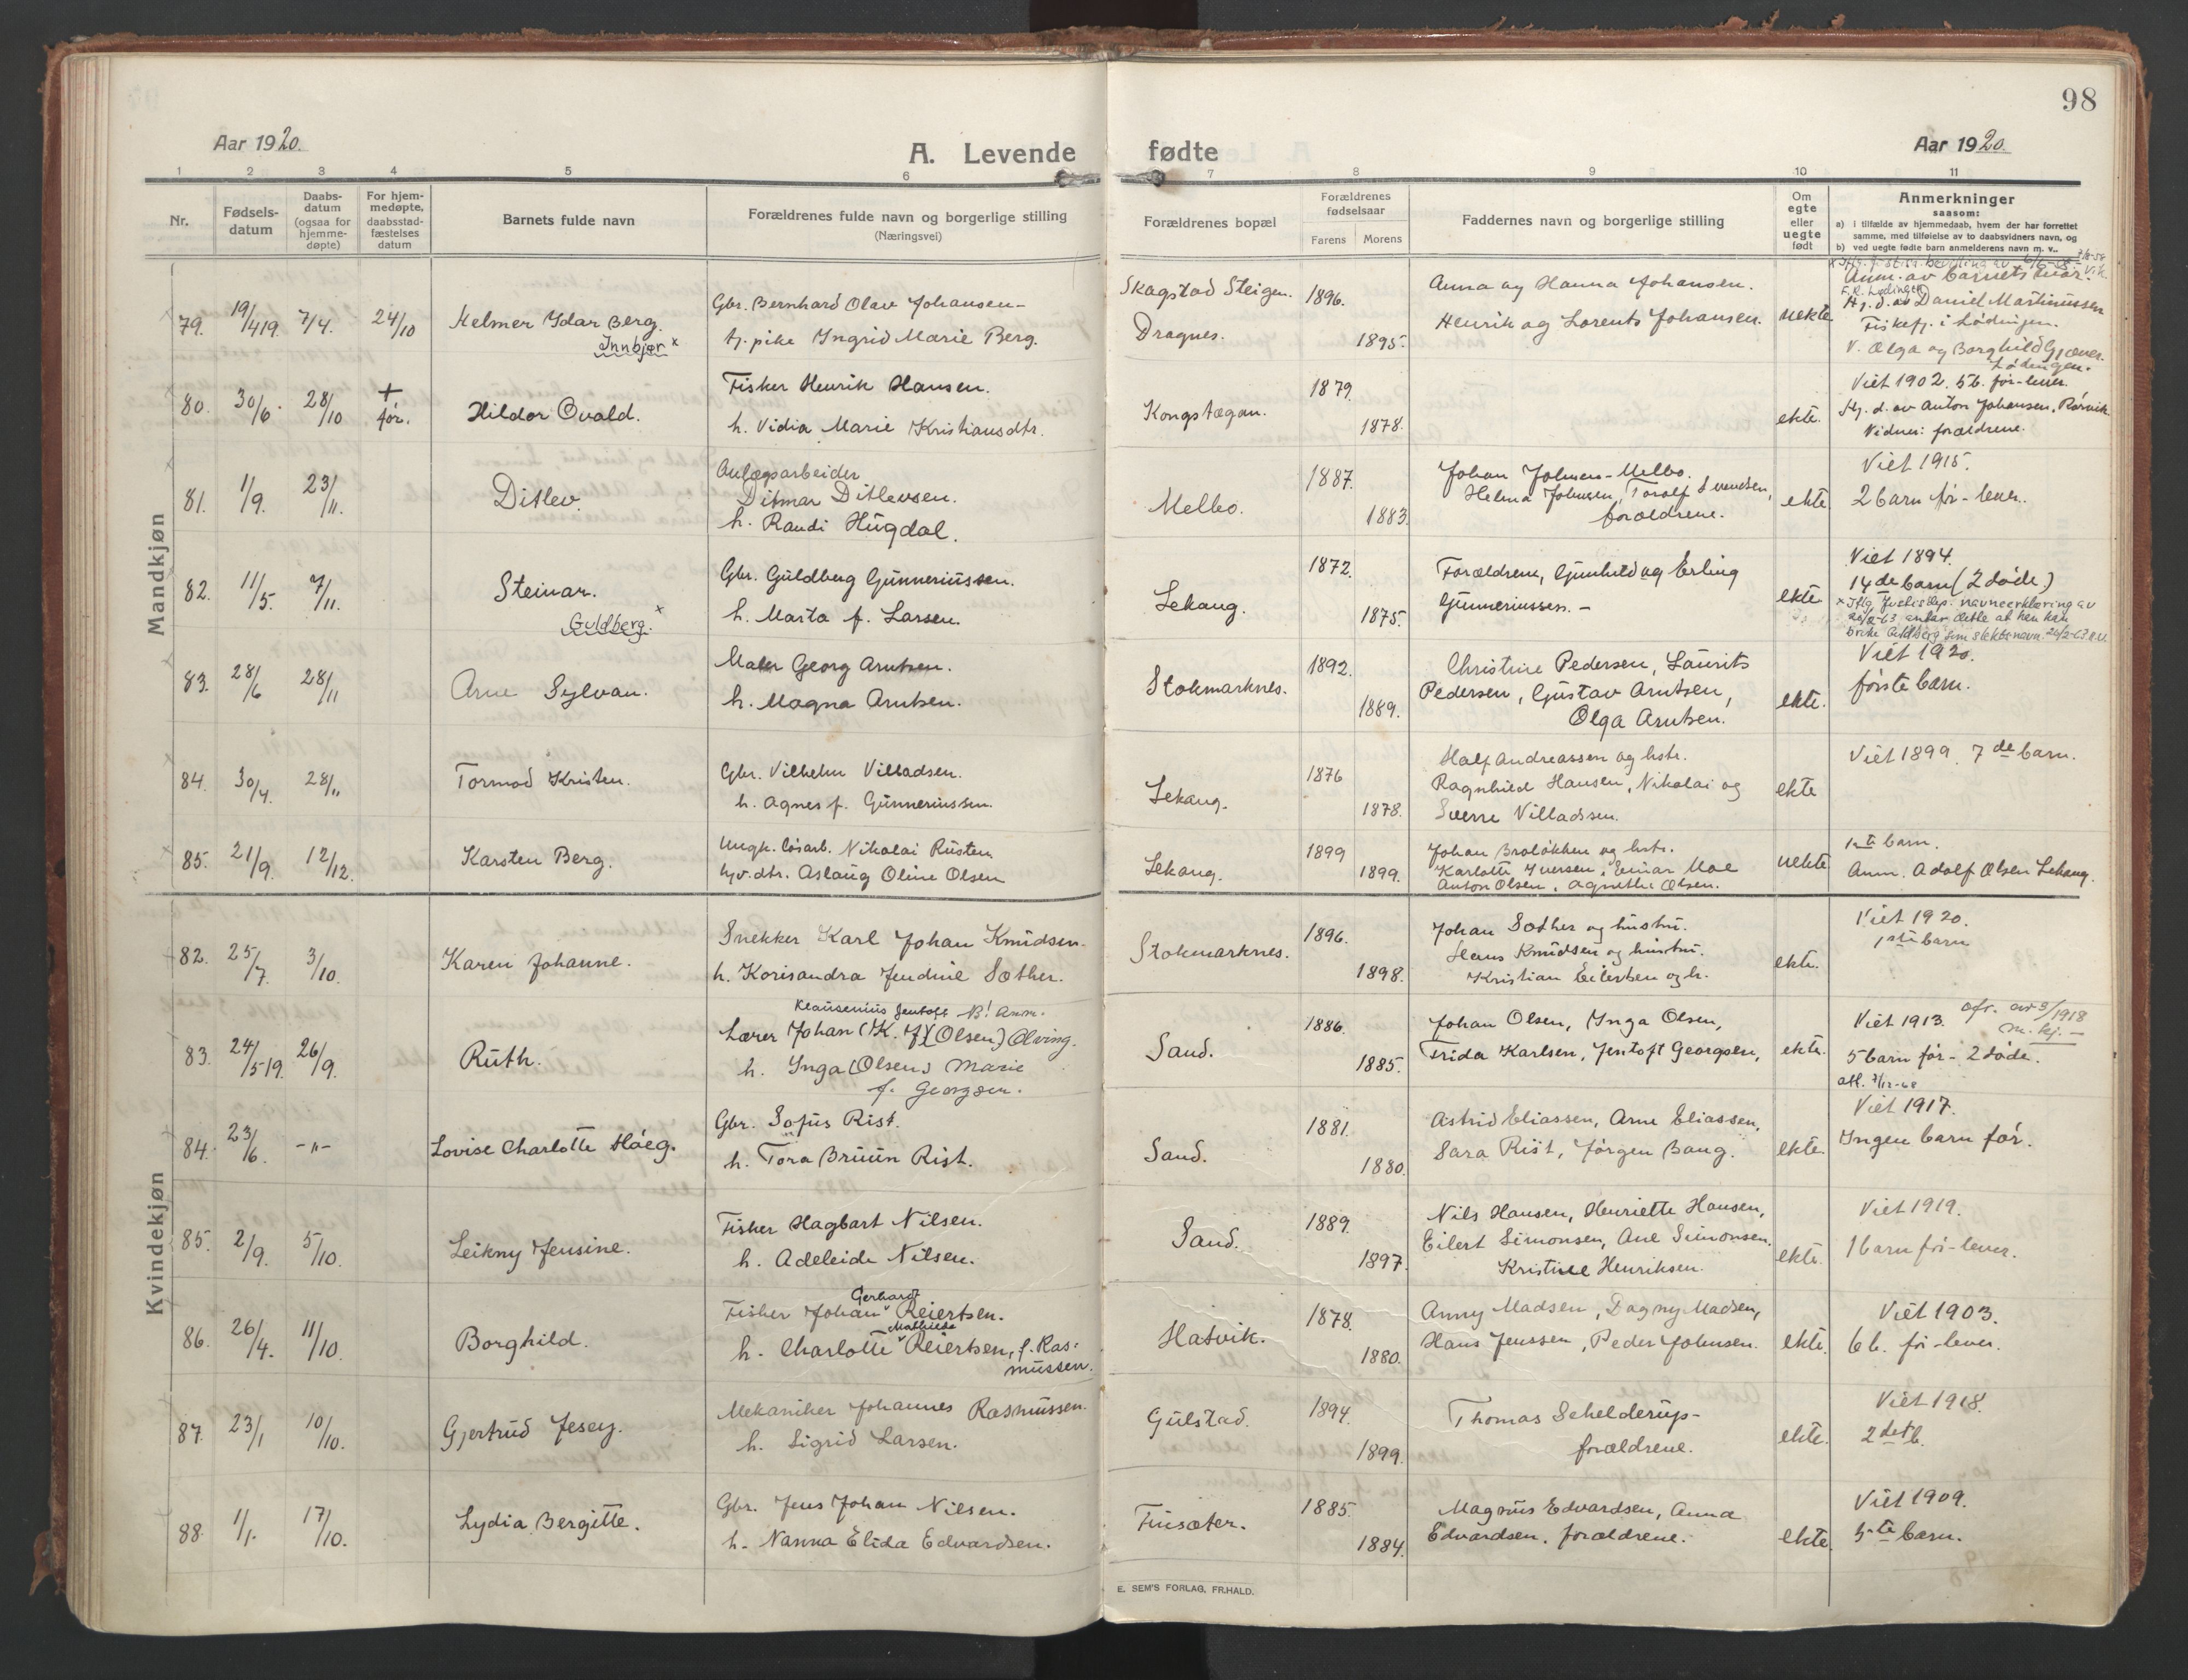 98
Aar 1920.
A. Levende fødte
Aar 1920.
1 2 3 4 5 6 7 8 9 10 11
Nr.
Fødsels-
datum
Daabs-
datum
(ogsaa for
hjemme-
døpte)
For hjem-
medøpte,
daabsstad-
fæstelses
datum
Barnets fulde navn
Forældrenes fulde navn og borgerlige stilling
(Næringsvei)
Forældrenes bopæl
Forældrenes
fødselsaar
Farens Morens
Faddernes navn og borgerlige stilling
Om
egte
eller
uegte
født
Anmerkninger
saasom:
a) i tilfælde av hjemmedaab, hvem der har forrettet
samme, med tilføielse av to daabsvidners navn, og
b) ved uegte fødte barn anmelderens navn m. v..
Mandkjøn
79. 19/4 19. 7/4. 24/10 Helmer Idar Berg.
Innbjør x
Gbr. Bernhard Olav Johansen-
tj. pike Ingrid Marie Berg.
Skagstad Steigen.
Dragnes.
1896.
1895.
Anna og Hanna Johansen.
Henrik og Lorents Johansen.
uekte
Anm. av barnets mor.
Hj. d. av Daniel Martinussen
Fiskefj. i Lødingen.
V. Olga og Borghild Gjæver.
Lødingen.
80. 30/6. 28/10 + før. Hildor Ovald.
Fisker Henrik Hansen.
h. Vidia Marie Kristiansdtr.
Kongstægan.
1879.
1878.
ekte.
Viet 1902. 5 b. før-lever.
Hj. d. av Anton Johansen, Rørvik
Vidner: forældrene.
81. 1/9. 23/11. Ditlev.
Anlægsarbeider
Ditmar Ditlevsen.
h. Randi Hugdal.
Melbo.
1887.
1883.
Johan Johnsen-Melbo.
Helma Johnsen, Torolf Svendsen,
forældrene.
ekte.
Viet 1915.
2 barn før-lever.
82. 11/5. 7/11. Steinar.
Guldberg. x
Gbr. Guldberg Gunneriussen.
h. Marta f. Larsen.
Lekang.
1872.
1875.
Forældrene, Gunhild og Erling
Gunneriussen.-
ekte.
Viet 1894.
14de barn (2 døde.)
x Iflg. Justisdep. navneerklæring av
20/2-63 antar dette at han kan
bruke Guldberg som slektsnavn.
83. 28/6 28/11 Arne Sylvan.
Maler Georg Arntsen.
h. Magna Arntsen.
Stokmarknes.
1892.
1889.
Christine Pedersen, Laurits
Pedersen, Gustav Arntsen,
Olga Arntsen.
ekte.
Viet 1920.
første barn.
84. 30/4. 28/11 Tormod Kristen.
Gbr. Vilhelm Villadsen.
h. Agnes f. Gunneriussen.
Lekang.
1876
1878.
Half Andreassen og hstr.
Ragnhild Hansen, Nikolai og
Sverre Villadssen.
ekte
Viet 1899. 7de barn.
85. 21/9. 12/12. Karsten Berg.
Ungk. løsarb. Nikolai Rusten
hjv. dtr. Aslaug Oline Olsen
Lekang.
1899
1899.
Johan Braløkken og hstr.
Karlotte Iversen, Einar Moe
Anton Olsen, Agnethe Olsen.
uekte
1ste barn.
Anm. Adolf Olsen Lekang.
Kvindekjøn
82. 25/7. 3/10. Karen Johanne.
Snekker Karl Johan Knudsen.
h. Korisandra Jendine Sæther.
Stokmarknes.
1896.
1898.
Johan Sæther og hustru.
Hans Knudsen og hustru.
Kristian Eilertsen og h.
ekte.
Viet 1920.
1ste barn
83. 24/5 19. 26/9. Ruth.
Klausenius Jentoft N.B! Anm.
Lærer Johan (K. J) (Olsen) Olving.
h. Inga (Olsen) Marie
f. Georgsen.
Sand.
1886.
1885.
Johan Olsen, Inga Olsen,
Frida Karlsen, Jentoft Georgsen,
ekte.
Viet 1913.
5 barn før- 2 døde.
att. 7/12-68
84. 23/6. -"- Lovise Charlotte Høeg.
Gbr. Sofus Rist.
h. Tora Bruun Rist.
Sand.
1881.
1880.
Astrid Eliassen, Arne Eliassen,
Sara Rist, Jørgen Bang.
ekte
Viet 1917.
Ingen barn før.
85. 2/9. 5/10. Leikny Jensine.
Fisker Hagbart Nilsen.
h. Adeleide Nilsen.
Sand.
1889.
1897.
Nils Hansen, Henriette Hansen,
Eilert Simonsen, Ane Simonsen.
Kristine Henriksen.
ekte.
Viet 1919.
1 barn før-lever.
86. 26/4. 11/10. Borghild.
Gerhardt
Fisker Johan Reiertsen.
Mathilde
h. Charlotte Reiertsen, f. Ras-
mussen.
Hatvik.
1878.
1880.
Anny Madsen, Dagny Madsen,
Hans Jenssen, Peder Johnsen.
ekte.
Viet 1903.
6 b. før-lever.
87. 23/1 10/10. Gjertrud Jesey.
Mekaniker Johannes Rasmussen.
h. Sigrid Larsen.
Gulstad.
1894.
1899.
Thomas Schelderup-
forældrene.
ekte.
Viet 1918.
2det b.
88. 1/1. 17/10. Lydia Bergitte.
Gbr. Jens Johan Nilsen.
h. Nanna Elida Edvardsen.
Finsæter.
1885.
1884.
Magnus Edvardsen, Anna
Edvardsen, forældrene.
ekte.
Viet 1909.
5te barn.
E. SEM'S FORLAG, FR.HALD.